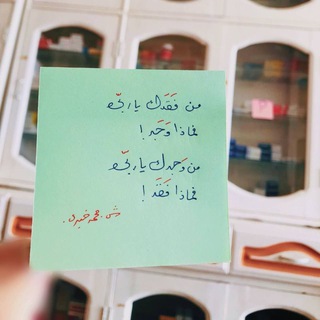 من فَقَدك ياربّي
فماذا وَجَد!
من وَجدك ياربّي
فماذا فَقَد!
ش. محمد خيري.